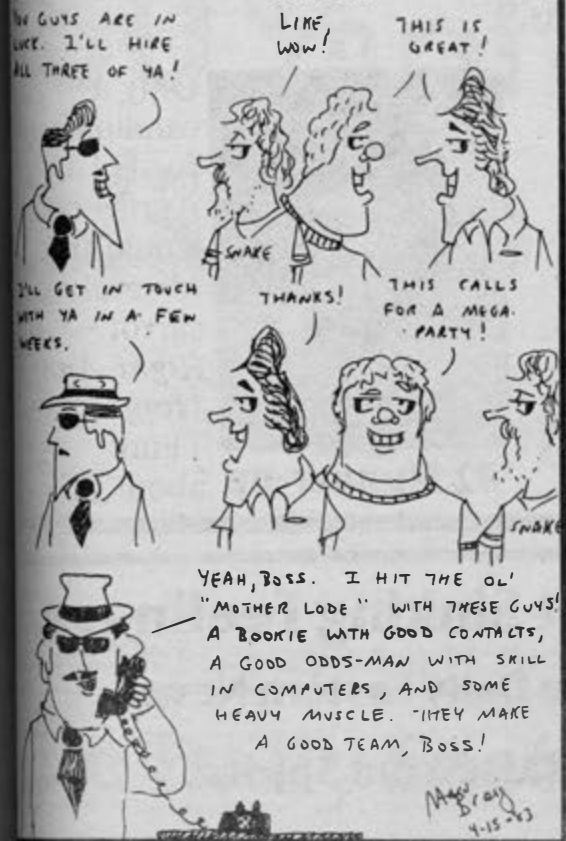 YOU GUYS ARE IN
LUCK. I'LL HIRE
ALL THREE OF YA!
LIKE,
WOW!
THIS IS
GREAT!
SNAKE
I'LL GET IN TOUCH
WITH YA IN A FEW
WEEKS.
THANKS!
THIS CALLS
FOR A MEGA-
PARTY!
SNAKE
YEAH, BOSS. I HIT THE OL'
"MOTHER LODE" WITH THESE GUYS!
A BOOKIE WITH GOOD CONTACTS,
A GOOD ODDS-MAN WITH SKILL
IN COMPUTERS, AND SOME
HEAVY MUSCLE. THEY MAKE
A GOOD TEAM, BOSS!
4-15-83